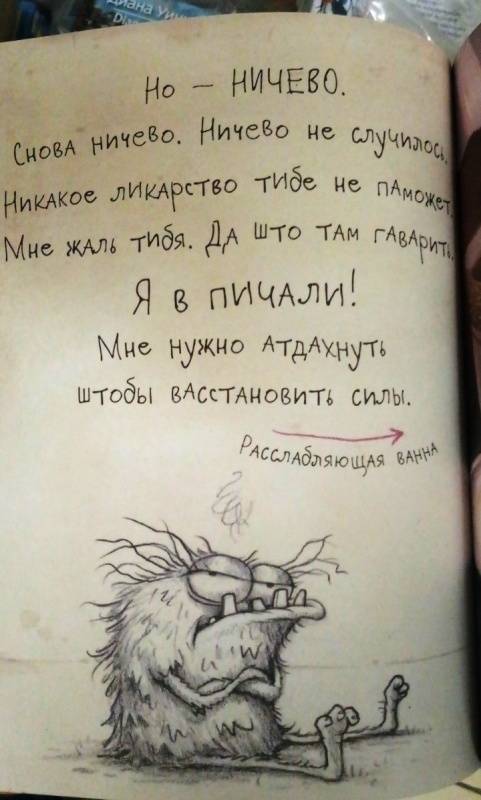 Диана Уин
Но — НИЧЕВО.
Снова ничево. Ничево не случилось.
Никакое ликарство тибе не паможет.
Мне жаль тибя. Да што там гаварить.
Я в пичали!
Мне нужно атдахнуть
штобы васстановить силы.
Расслабляющая ванна